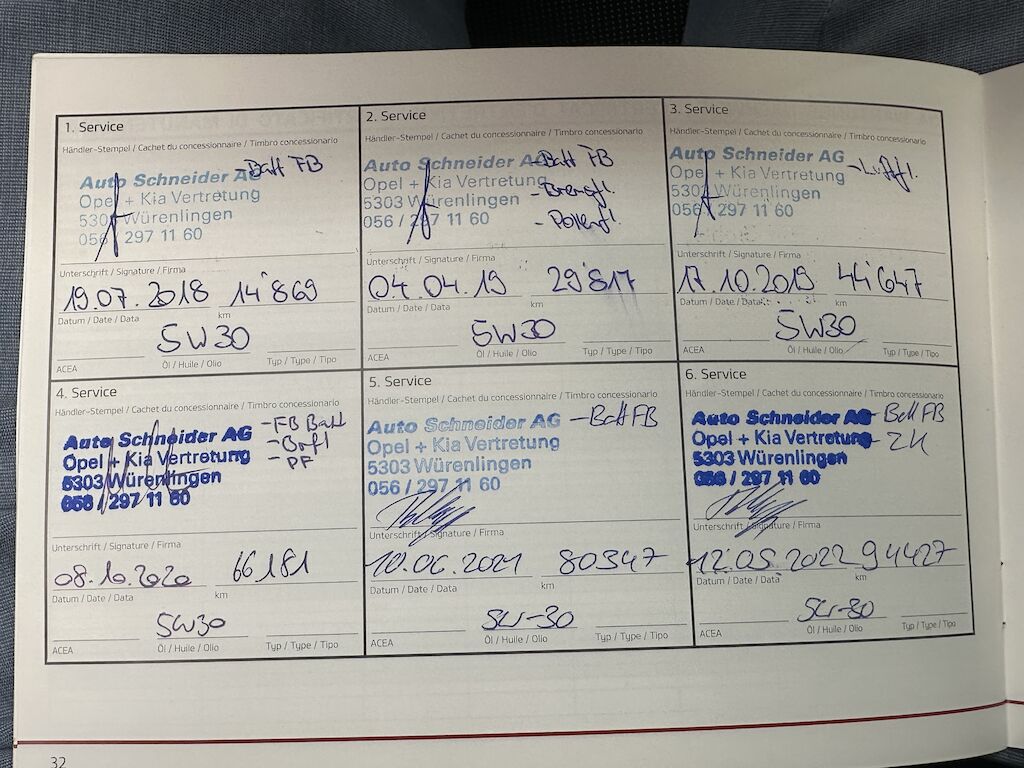 1. Service
Händler-Stempel / Cachet du concessionnaire / Timbro concessionario
Auto Schneider AG
- Batt FB
Opel + Kia Vertretung
5303 Würenlingen
056 / 297 11 60
Unterschrift / Signature / Firma
19.07.2018 14'869
Datum / Date / Data km
5W30
ACEA Öl / Huile / Olio Typ / Type / Tipo
2. Service
Händler-Stempel / Cachet du concessionnaire / Timbro concessionario
Auto Schneider AG
- Batt FB
Opel + Kia Vertretung
- Bremsfl.
5303 Würenlingen
- Pollenf.
056 / 297 11 60
Unterschrift / Signature / Firma
04.04.19 29'817
Datum / Date / Data km
5W30
ACEA Öl / Huile / Olio Typ / Type / Tipo
3. Service
Händler-Stempel / Cachet du concessionnaire / Timbro concessionario
Auto Schneider AG
- Luftf.
Opel + Kia Vertretung
5303 Würenlingen
056 / 297 11 60
Unterschrift / Signature / Firma
17.10.2019 44'647
Datum / Date / Data km
5W30
ACEA Öl / Huile / Olio Typ / Type / Tipo
4. Service
Händler-Stempel / Cachet du concessionnaire / Timbro concessionario
- FB Batt
Auto Schneider AG
- Brfl
Opel + Kia Vertretung
- PF
5303 Würenlingen
056 / 297 11 60
Unterschrift / Signature / Firma
08.10.2020 66181
Datum / Date / Data km
5W30
ACEA Öl / Huile / Olio Typ / Type / Tipo
5. Service
Händler-Stempel / Cachet du concessionnaire / Timbro concessionario
Auto Schneider AG - Batt FB
Opel + Kia Vertretung
5303 Würenlingen
056 / 297 11 60
Unterschrift / Signature / Firma
10.06.2021 80347
Datum / Date / Data km
5W-30
ACEA Öl / Huile / Olio Typ / Type / Tipo
6. Service
Händler-Stempel / Cachet du concessionnaire / Timbro concessionario
Auto Schneider AG - Batt FB
Opel + Kia Vertretung - ZK
5303 Würenlingen
056 / 297 11 60
Unterschrift / Signature / Firma
12.05.2022 94427
Datum / Date / Data km
5W-30
ACEA Öl / Huile / Olio Typ / Type / Tipo
32